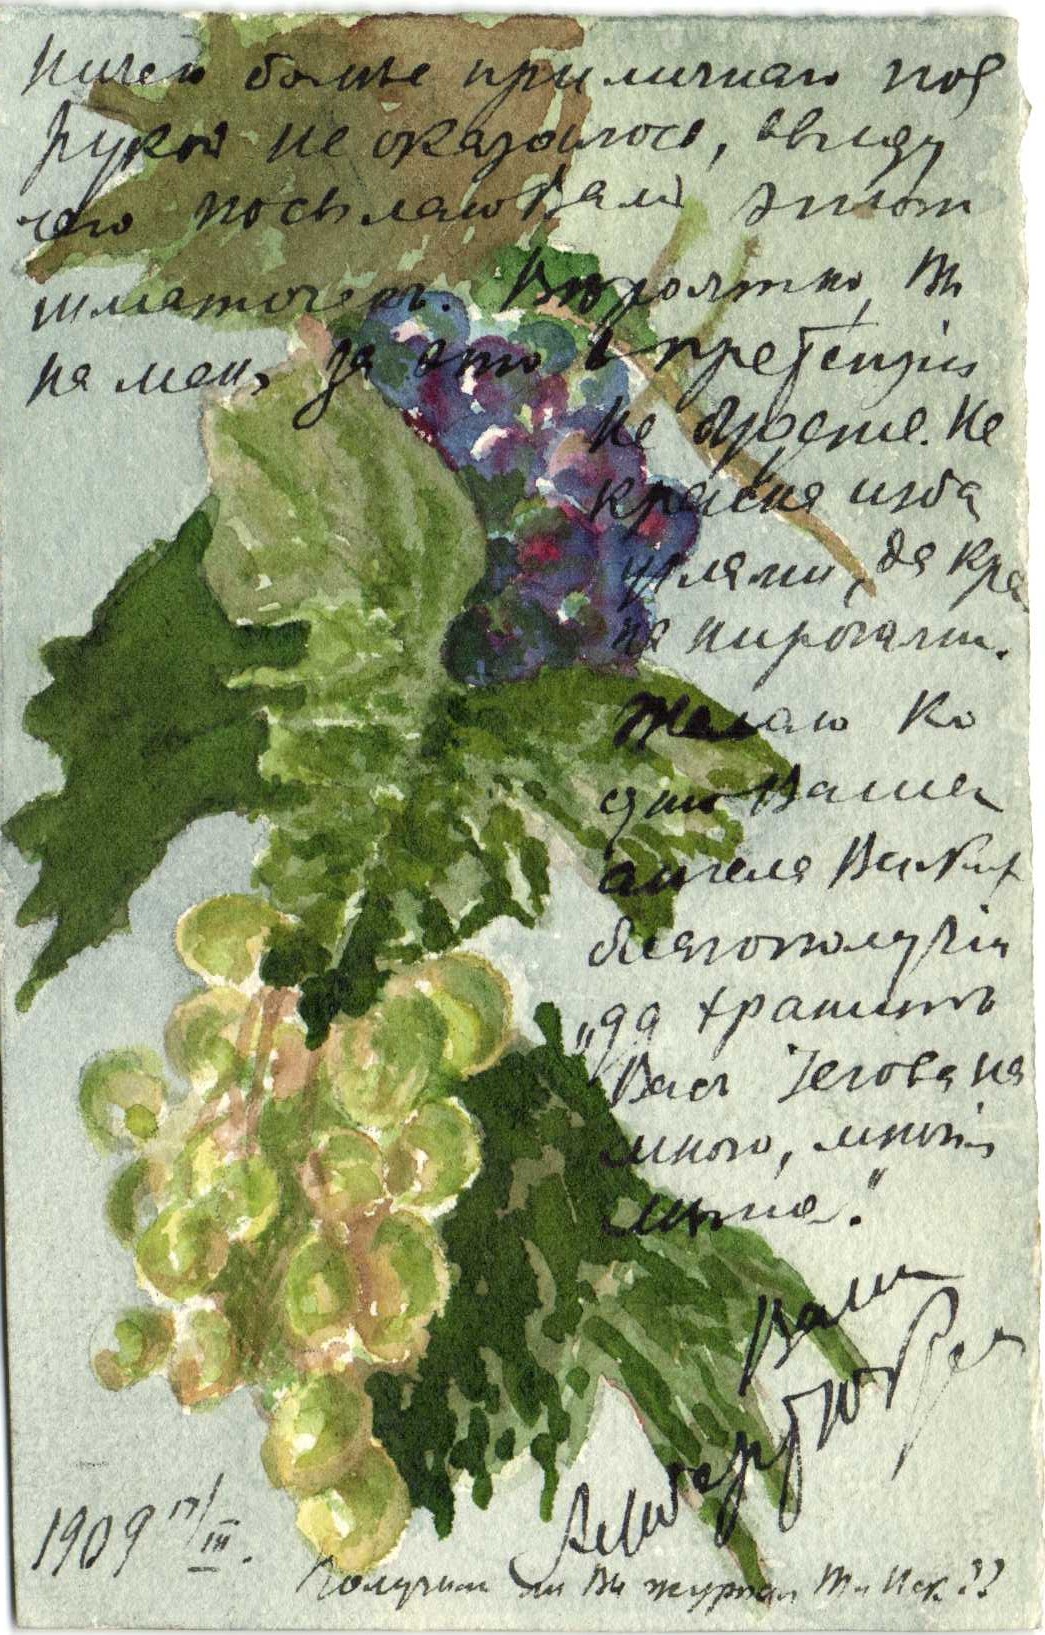 Ничего болѣе приличнаго под
рукой не оказалось, ввиду
чего посылаю Вамъ этотъ
шматочекъ. Вѣроятно, Вы
на меня за это в претензіи
не будете. Не
красна изба
углами, да крас
на пирогами.
Желаю ко
дню Вашего
ангела Всяких
благополучій
„да хранитъ
Васъ Iегова на
много, многія
лѣта."
Ваш
1909 17/III.
Получили ли Вы журнал Т и Иск.??